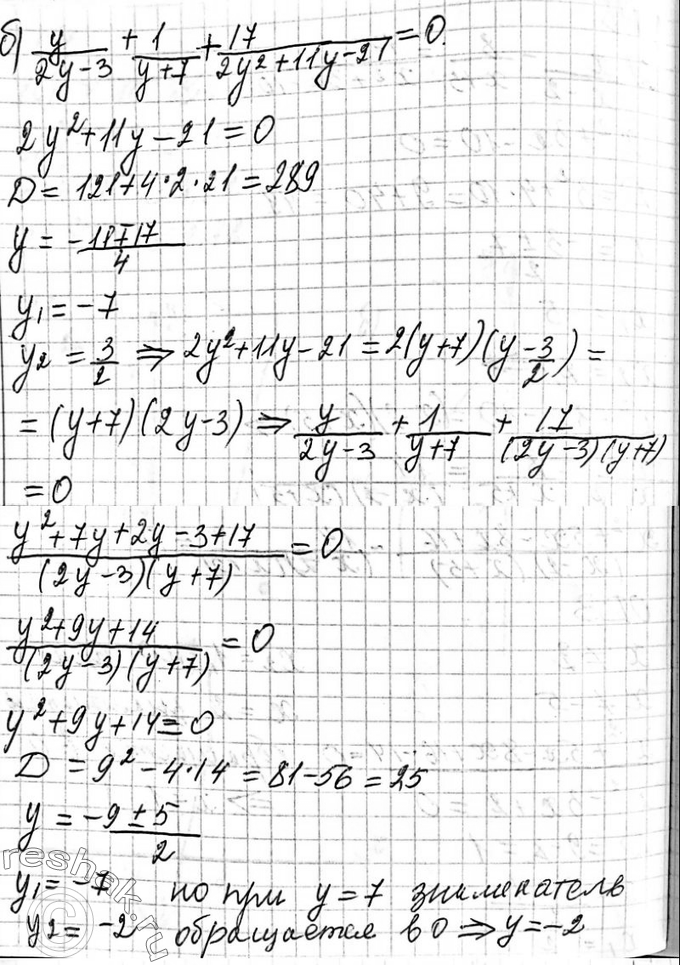 б) y/(2y-3) + 1/(y+7) + 17/(2y²+11y-21) = 0.
2y²+11y-21=0
D = 121+4·2·21=289
y = (-11∓17)/4
y₁ = -7
y₂ = 3/2 ⇒ 2y²+11y-21=2(y+7)(y-3/2)=
= (y+7)(2y-3) ⇒ y/(2y-3) + 1/(y+7) + 17/((2y-3)(y+7))
=0
(y²+7y+2y-3+17)/((2y-3)(y+7)) = 0
(y²+9y+14)/((2y-3)(y+7)) = 0
y²+9y+14=0
D = 9²-4·14=81-56=25
y = (-9±5)/2
y₁=-7 но при y=7 знаменатель
y2=-2 обращается в 0 ⇒ y=-2
reshak.ru